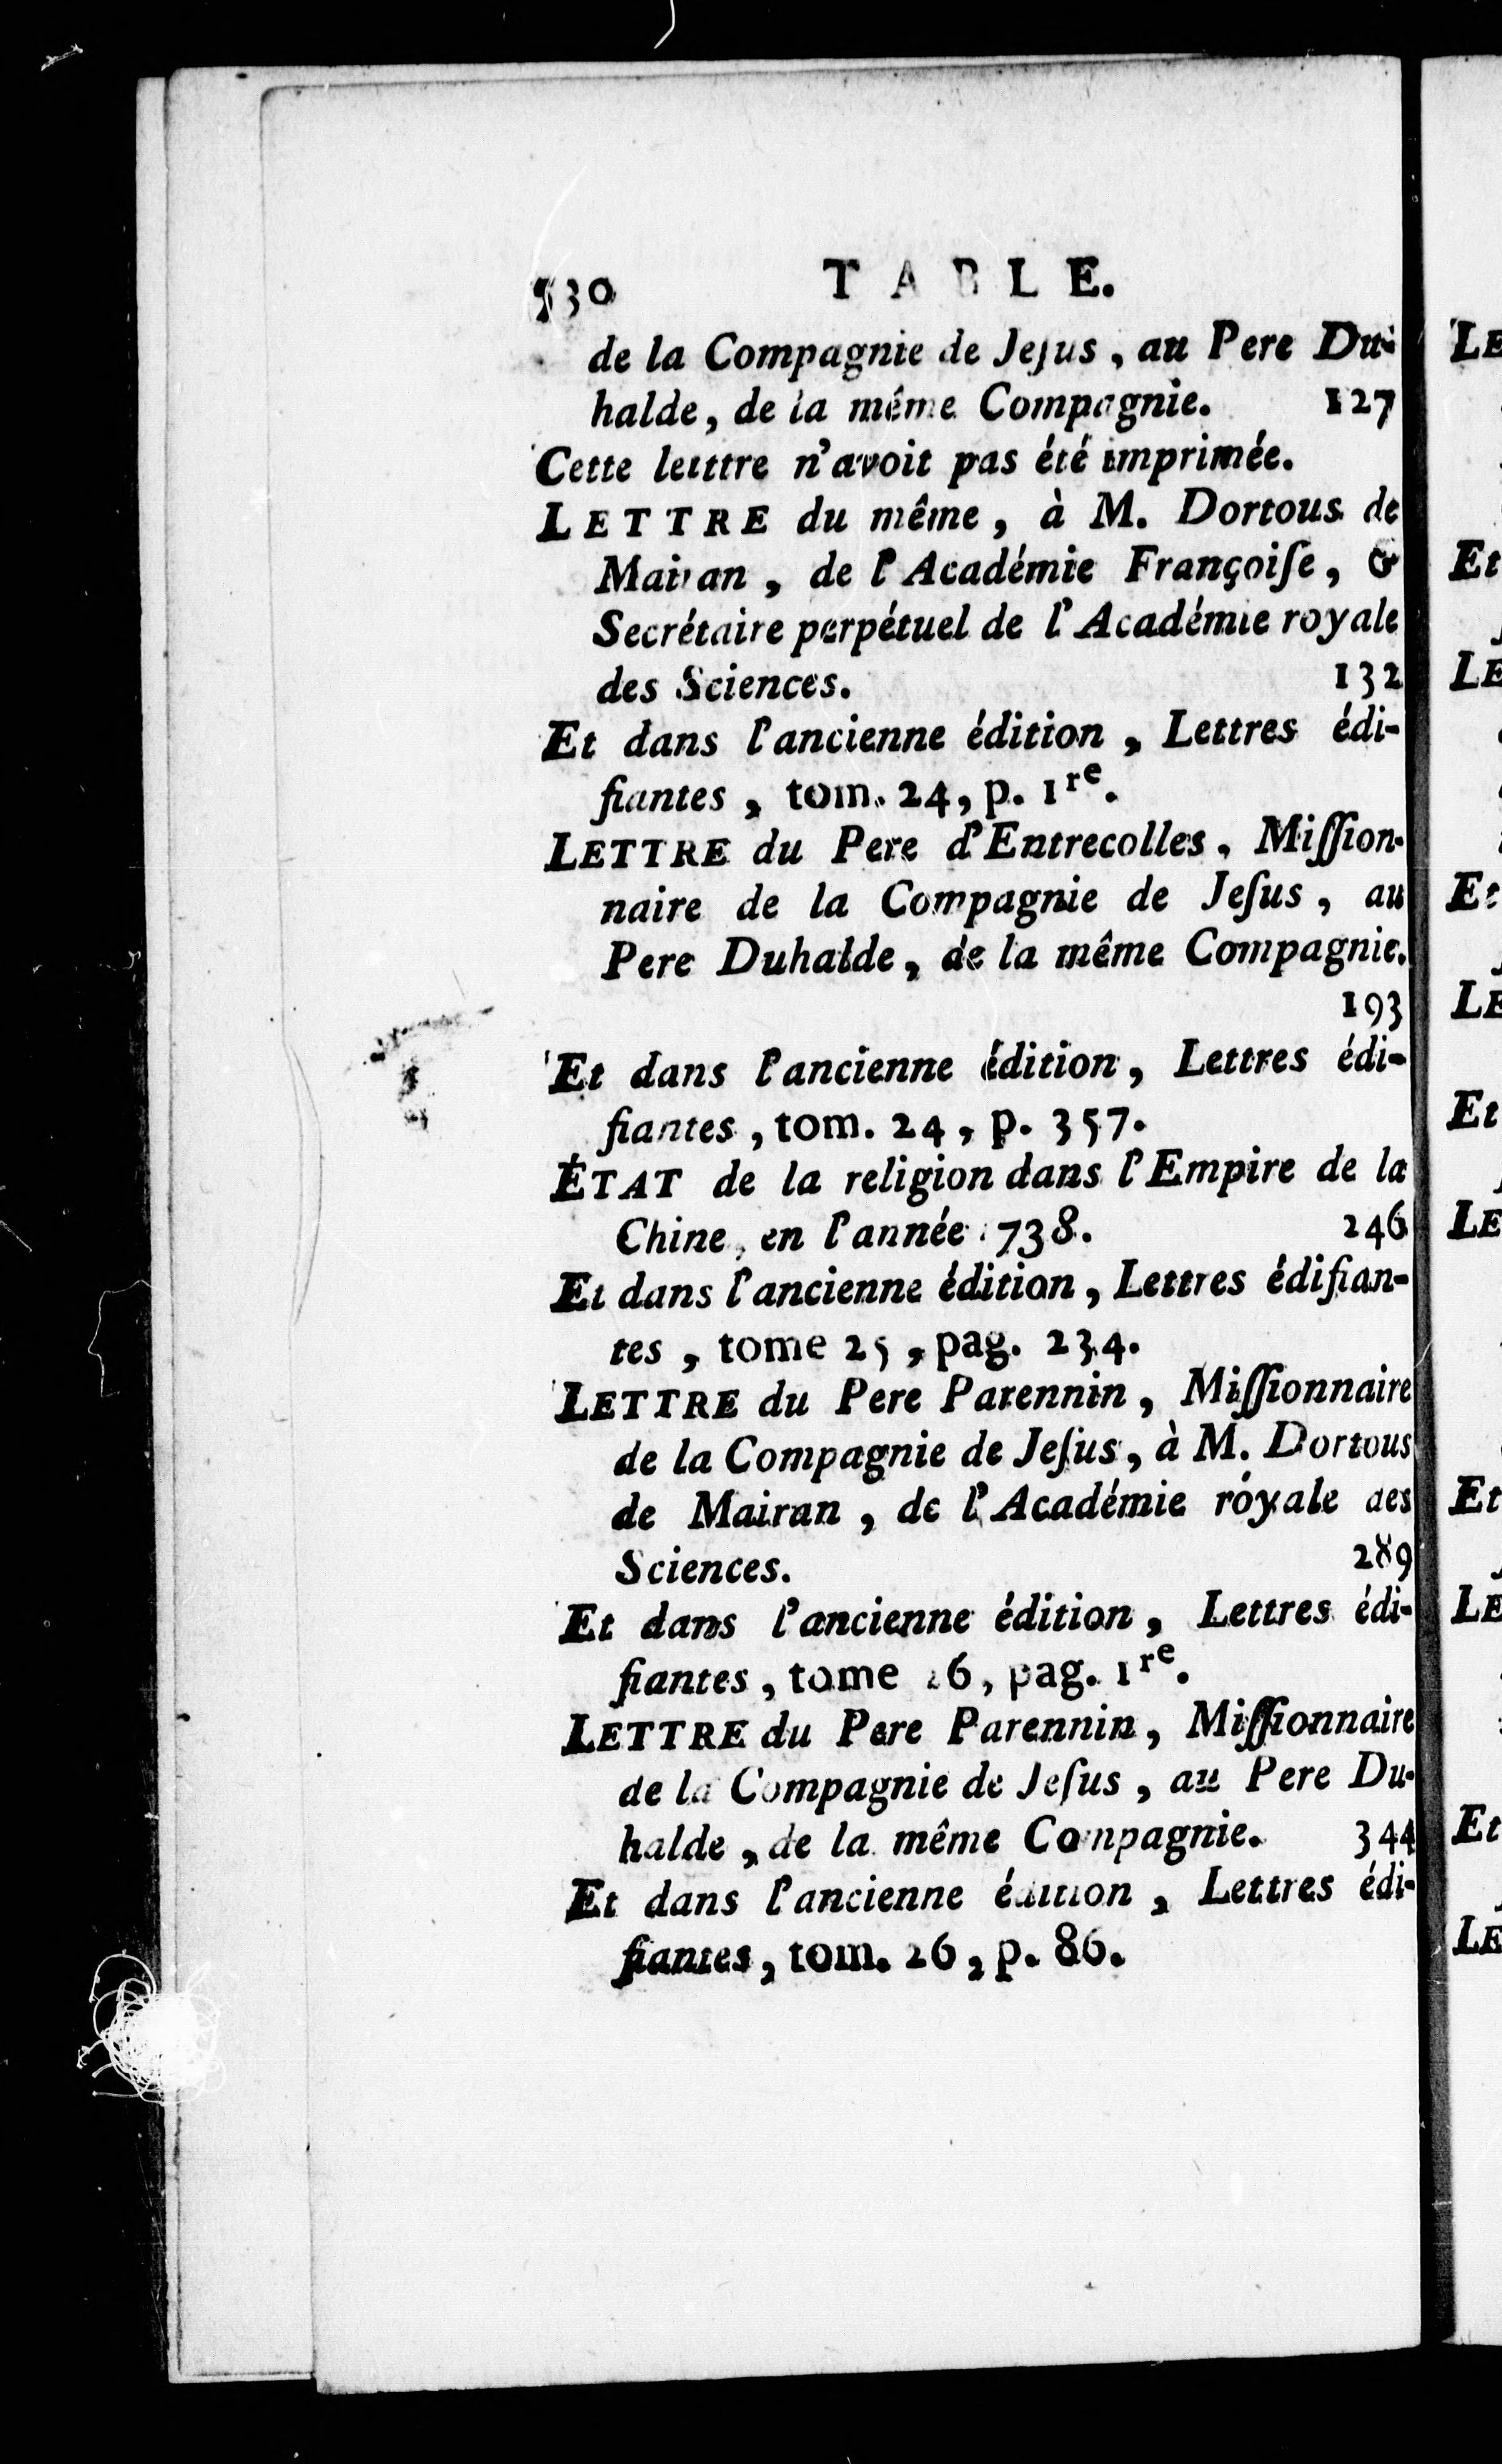 530 TABLE.
de la Compagnie de Jeſus, au Pere Du-
halde, de la même Compagnie. 127
Cette letttre n'avoit pas été imprimée.
LETTRE du même, à M. Dortous de
Mairan, de l'Académie Françoiſe, &
Secrétaire perpétuel de l'Académie royale
des Sciences. 132
Et dans l'ancienne édition, Lettres édi-
fiantes, tom. 24, p. 1re.
LETTRE du Pere d'Entrecolles, Miſſion-
naire de la Compagnie de Jeſus, au
Pere Duhalde, de la même Compagnie.
193
Et dans l'ancienne édition, Lettres édi-
fiantes, tom. 24, p. 357.
ÉTAT de la religion dans l'Empire de la
Chine, en l'année 1738. 246
Et dans l'ancienne édition, Lettres édifian-
tes, tome 25, pag. 234.
LETTRE du Pere Parennin, Miſſionnaire
de la Compagnie de Jeſus, à M. Dortous
de Mairan, de l'Académie royale des
Sciences. 289
Et dans l'ancienne édition, Lettres édi-
fiantes, tome 26, pag. 1re.
LETTRE du Pere Parennin, Miſſionnaire
de la Compagnie de Jeſus, au Pere Du-
halde, de la même Compagnie. 344
Et dans l'ancienne édition, Lettres édi-
fiantes, tom. 26, p. 86.
LE
Et
LE
Et
LE
Et
LE
Et
LE
Et
LE